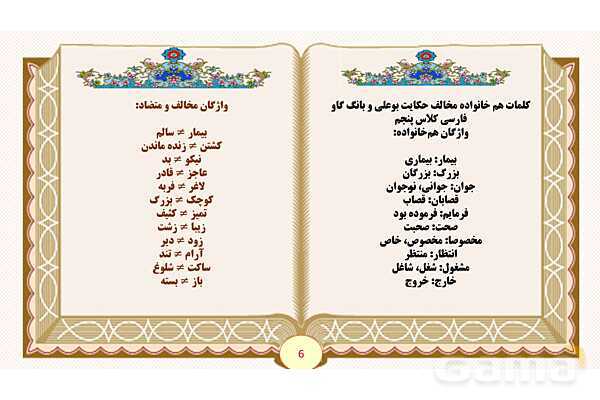 کلمات هم خانواده مخالف حکایت بوعلی و بانگ گاو
فارسی کلاس پنجم
واژگان هم‌خانواده:
بیمار: بیماری
بزرگ: بزرگان
جوان: جوانی، نوجوان
قصابان: قصاب
فرمایم: فرموده بود
صحت: صحبت
مخصوصا: مخصوص، خاص
انتظار: منتظر
مشغول: شغل، شاغل
خارج: خروج
واژگان مخالف و متضاد:
بیمار ≠ سالم
کشتن ≠ زنده ماندن
نیکو ≠ بد
عاجز ≠ قادر
لاغر ≠ فربه
کوچک ≠ بزرگ
تمیز ≠ کثیف
زیبا ≠ زشت
زود ≠ دیر
آرام ≠ تند
ساکت ≠ شلوغ
باز ≠ بسته
6
Gama